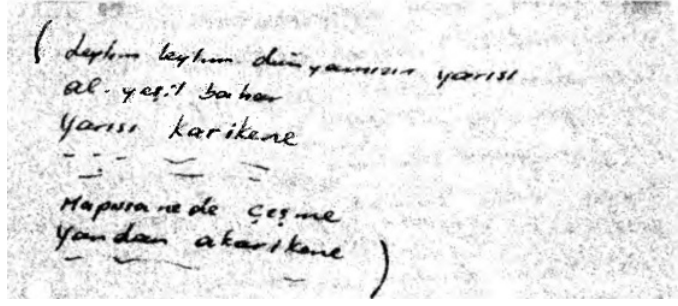 ( Leylim leylim dünyamızın yarısı
al-yeşil bahar
Yarısı karikene
Hapusanede çeşme
Yandan akarikene )